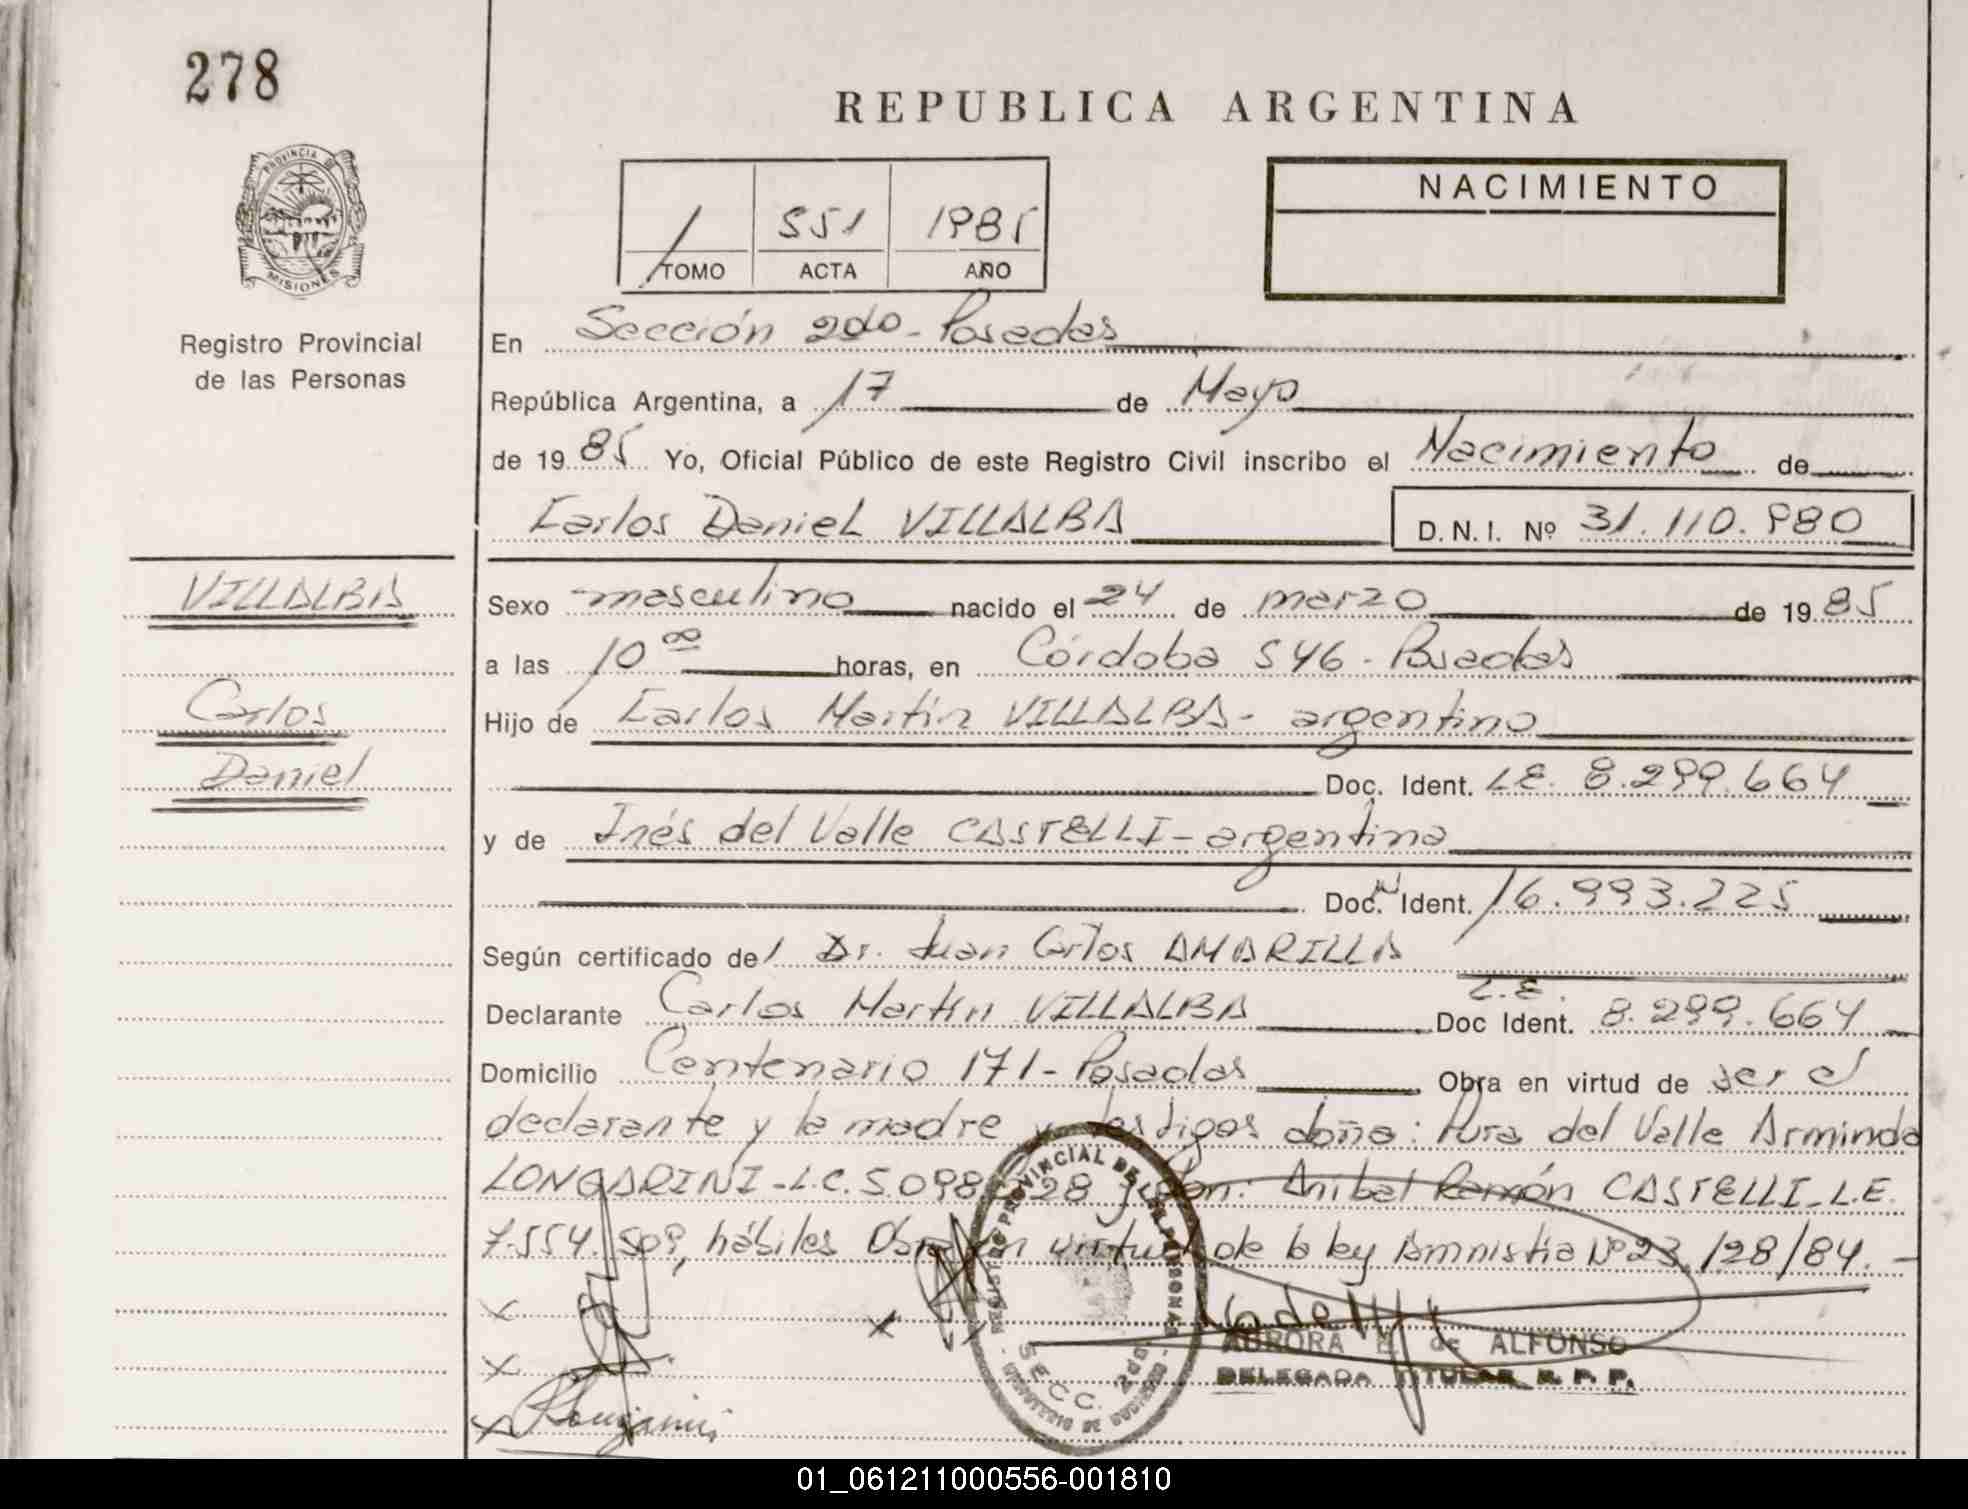 278
REPUBLICA ARGENTINA
PROVINCIA DE
MISIONES
Registro Provincial
de las Personas
/ 551 1985
TOMO ACTA AÑO
NACIMIENTO
En Sección 2do - Posadas
República Argentina, a 17 de Mayo
de 1985 Yo, Oficial Público de este Registro Civil inscribo el Nacimiento de
Carlos Daniel VILLALBA D.N.I. Nº 31.110.980
VILLALBA
Carlos
Daniel
Sexo masculino nacido el 24 de marzo de 1985
a las 10 oo horas, en Córdoba 546 - Posadas
Hijo de Carlos Martín VILLALBA - argentino
Doc. Ident. L.E. 8.299.664
y de Inés del Valle CASTELLI - argentina
Doc. Ident. 16.993.225
Según certificado del Dr. Juan Carlos AMARILLA
Declarante Carlos Martín VILLALBA Doc Ident. L.E. 8.299.664
Domicilio Centenario 171 - Posadas Obra en virtud de ser el
declarante y la madre y testigos doña: Pura del Valle Arminda
LONGARINI - L.C. 5.098. 28 y don: Anibal Ramón CASTELLI - L.E.
7.554.509, hábiles Obra en virtud de la ley Amnistia Nº 23.128/84. -
REGISTRO PROVINCIAL DE LAS PERSONAS
SECC. 2da
AURORA de ALFONSO
DELEGADA TITULAR R. P. P.
01_061211000556-001810